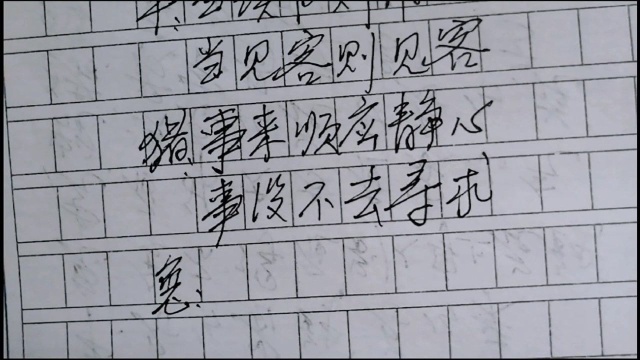 当见客则见客
猪:事来顺应静心
事没不去寻求